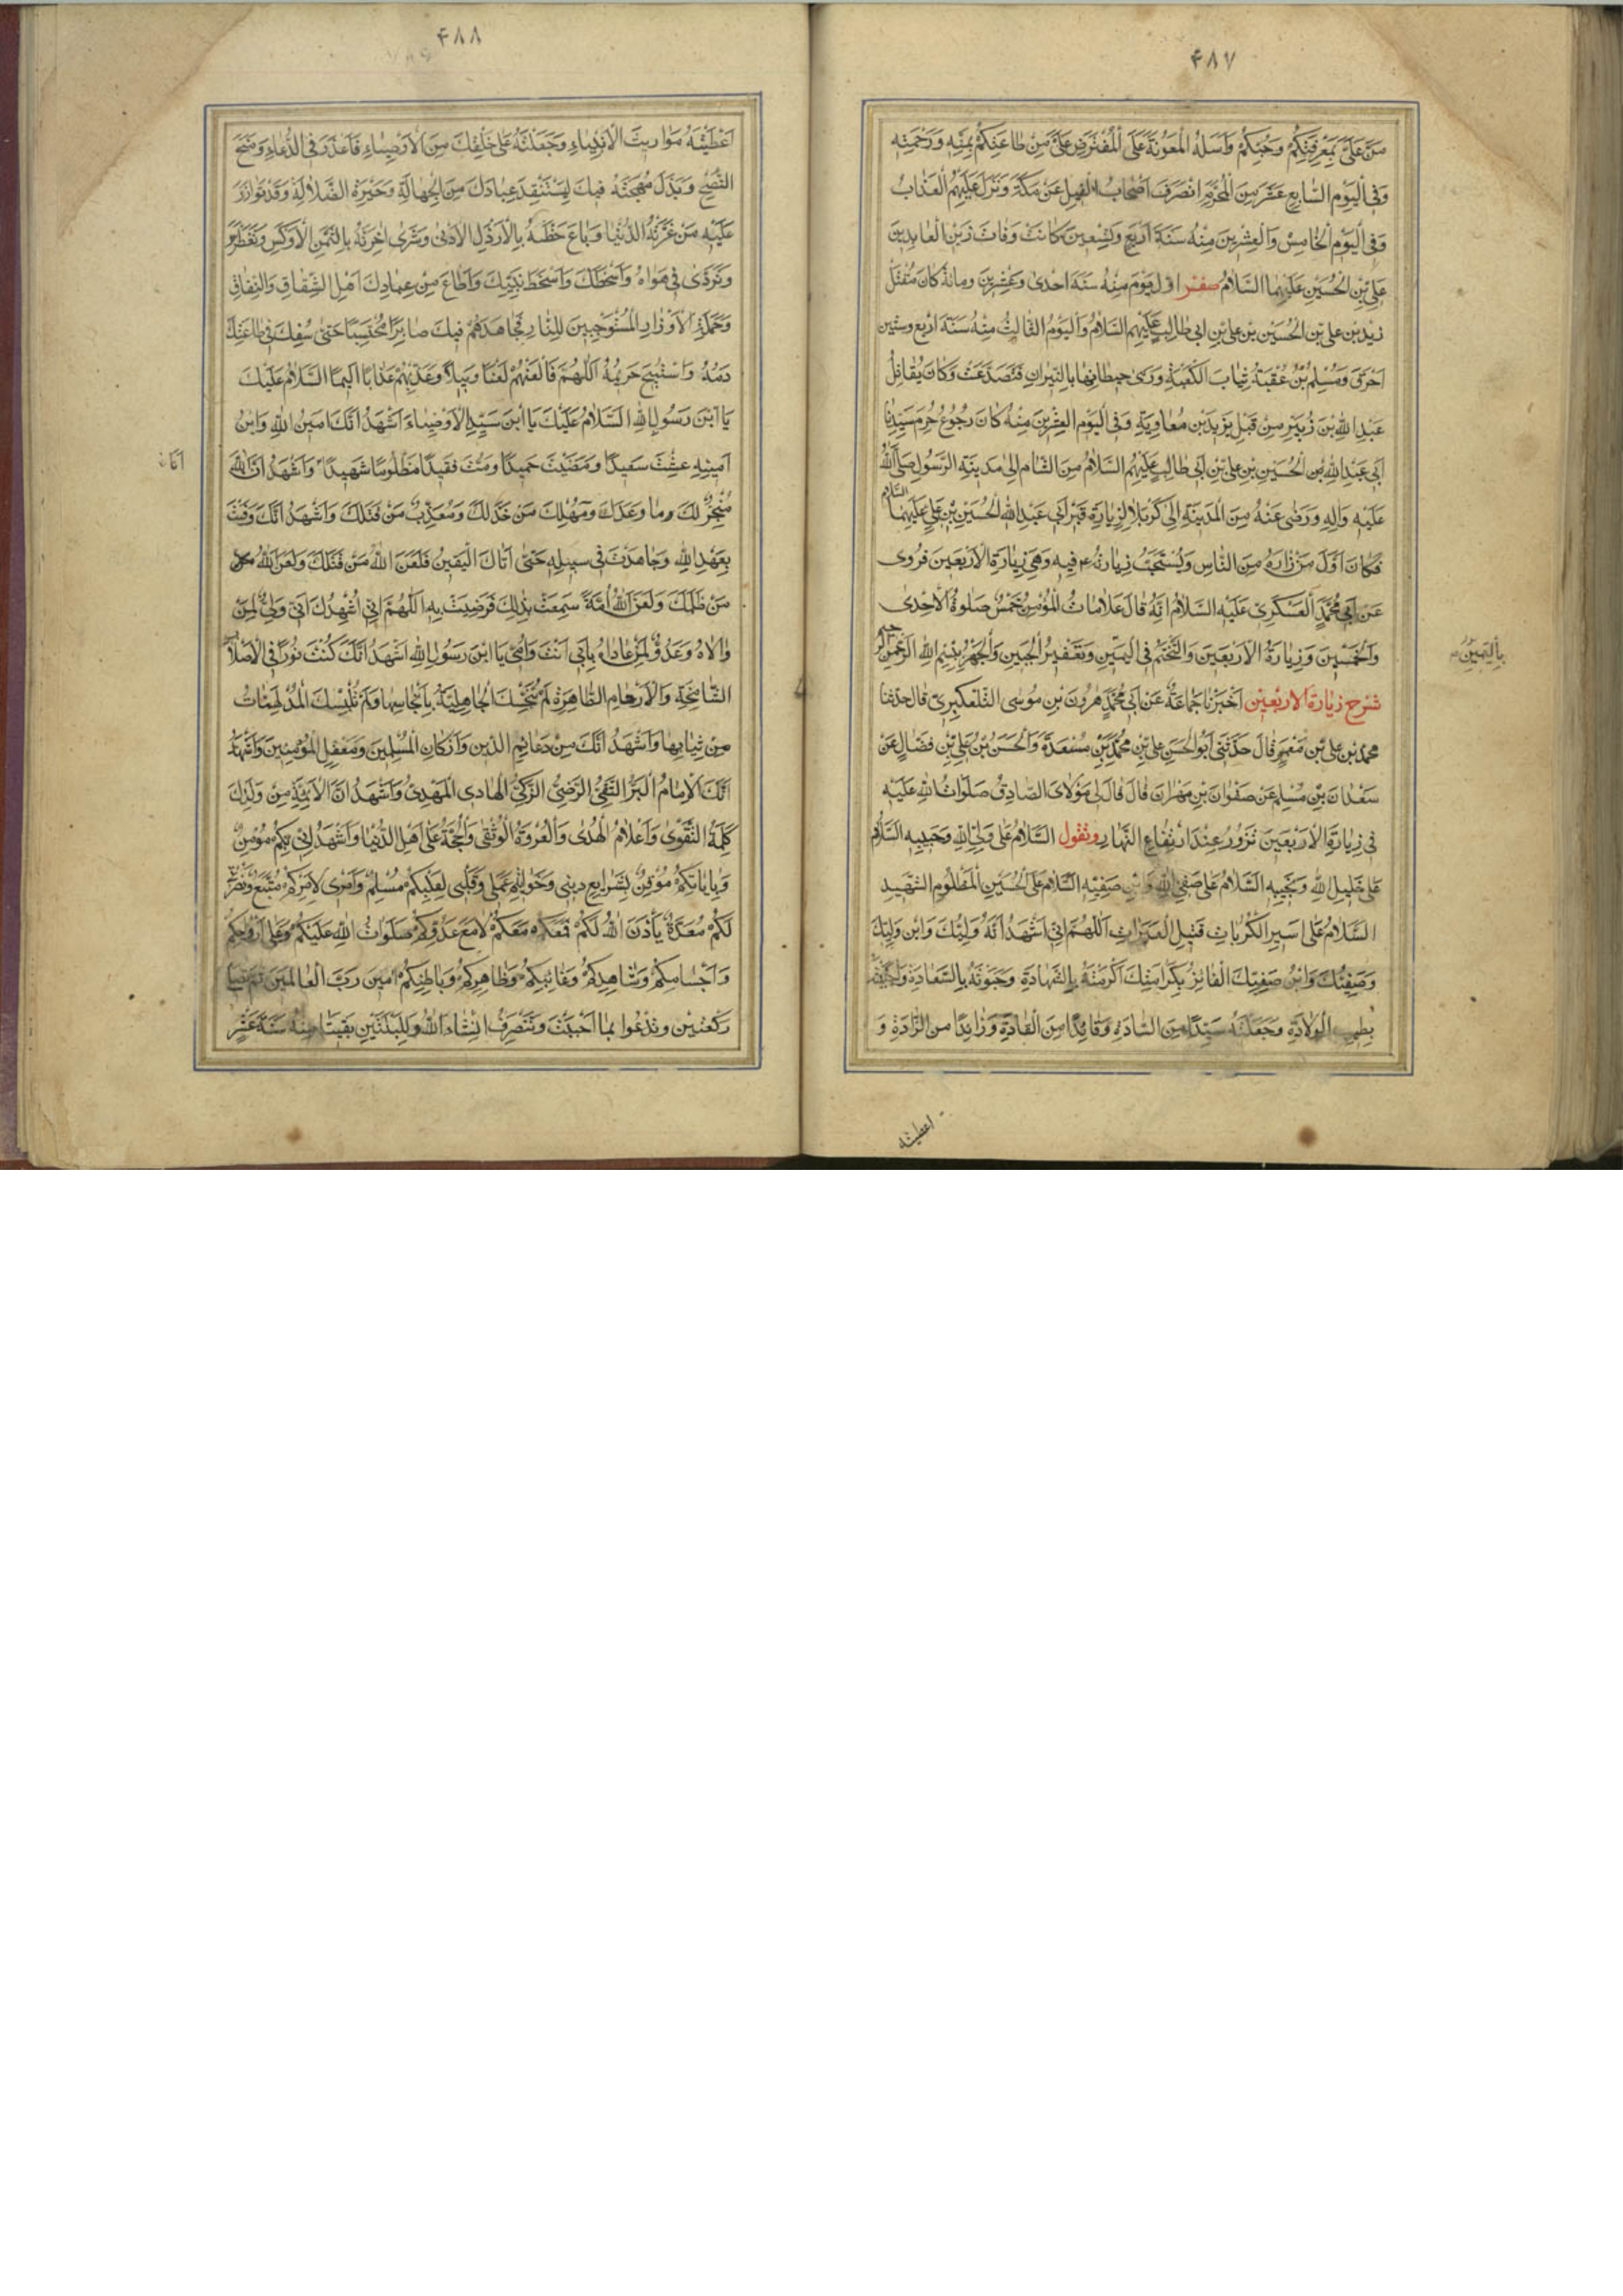 ۴۸۷
مَنَّ عَلَيَّ بِمَعْرِفَتِكُمْ وَحُبِّكُمْ وَاَسْئَلُهُ الْمَعُونَةَ عَلَى الْمُفْتَرَضِ عَلَيَّ مِنْ طَاعَتِكُمْ بِمَنِّهِ وَرَحْمَتِهِ
وَفِي الْيَوْمِ السَّابِعِ عَشَرَ مِنَ الْمُحَرَّمِ انْصَرَفَ اَصْحَابُ الْفِيلِ عَنْ مَكَّةَ وَنَزَلَ عَلَيْهِمُ الْعَذَابُ
وَفِي الْيَوْمِ الْخَامِسِ وَالْعِشْرِينَ مِنْهُ سَنَةَ اَرْبَعٍ وَتِسْعِينَ كَانَتْ وَفَاةُ زَيْنِ الْعَابِدِينَ
عَلِيِّ بْنِ الْحُسَيْنِ عَلَيْهِمَا السَّلَامُ صفر اول يَوْمٍ مِنْهُ سَنَةَ اِحْدَى وَعِشْرِينَ ومائة كَانَ مَقْتَلُ
زيد بن علي بن الْحُسَيْنِ بن علي بن ابي طالب عَلَيْهِمُ السَّلَامُ وَالْيَوْمُ الثَّالِثُ مِنْهُ سَنَةَ اَرْبَعٍ وستين
اَحْرَقَ وَمُسْلِمُ بْنُ عُقْبَةَ ثِيَابَ الْكَعْبَةِ وَرَمَى حِيطَانَهَا بِالنِّيرَانِ فَتَصَدَّعَتْ وَكَانَ يُقَاتِلُ
عَبْدَ اللّٰهِ بْنَ زُبَيْرٍ مِنْ قِبَلِ يَزِيدَ بْنِ مُعَاوِيَةَ وَفِي الْيَوْمِ الْعِشْرِينَ مِنْهُ كَانَ رُجُوعُ حُرَمِ سَيِّدِنَا
اَبِي عَبْدِ اللّٰهِ بْنِ الْحُسَيْنِ بْنِ عَلِيِّ بْنِ اَبِي طَالِبٍ عَلَيْهِمُ السَّلَامُ مِنَ الشَّامِ اِلَى مَدِينَةِ الرَّسُولِ صَلَّى اللّٰهُ
عَلَيْهِ وَاٰلِهِ وَرَضِيَ عَنْهُ مِنَ الْمَدِينَةِ اِلَى كَرْبَلَا لِزِيَارَةِ قَبْرِ اَبِي عَبْدِ اللّٰهِ الْحُسَيْنِ بْنِ عَلِيٍّ عَلَيْهِمَا السَّلَام
فَكَانَ اَوَّلَ مَنْ زَارَهُ مِنَ النَّاسِ وَيُسْتَحَبُّ زِيَارَتُهُ ع فِيهِ وَهِيَ زِيَارَةُ الْاَرْبَعِينَ فَرُوِيَ
عَنْ اَبِي مُحَمَّدٍ الْعَسْكَرِيِّ عَلَيْهِ السَّلَامُ اَنَّهُ قَالَ عَلَامَاتُ الْمُؤْمِنِ خَمْسٌ صَلٰوةُ الْاِحْدَى
وَالْخَمْسِينَ وَزِيَارَةُ الْاَرْبَعِينَ وَالتَّخَتُّمُ فِي الْيَمِينِ وَتَعْفِيرُ الْجَبِينِ وَالْجَهْرُ بِبِسْمِ اللّٰهِ الرَّحْمٰنِ الرحيم
باليَمِينِ
شرح زيارة الاربعين اَخْبَرَنَا جَمَاعَةٌ عَنْ اَبِي مُحَمَّدٍ هٰرُونَ بْنِ مُوسَى التَّلَّعُكْبَرِيِّ قال حدثنا
محمد بن علي بن مَعْمَرٍ قَالَ حَدَّثَنِي اَبُو الْحَسَنِ عَلِيُّ بْنُ مُحَمَّدِ بْنِ مَسْعَدَةَ وَالْحَسَنُ بْنُ عَلِيِّ بْنِ فَضَّالٍ عَنْ
سَعْدَانَ بْنِ مُسْلِمٍ عَنْ صَفْوَانَ بْنِ مِهْرَانَ قَالَ قَالَ لِي مَوْلَايَ الصَّادِقُ صَلَوَاتُ اللّٰهِ عَلَيْهِ
فِي زِيَارَةِ الْاَرْبَعِينَ تَزُورُ عِنْدَ ارْتِفَاعِ النَّهَارِ وتقول السَّلَامُ عَلَى وَلِيِّ اللّٰهِ وَحَبِيبِهِ السَّلَامُ
عَلَى خَلِيلِ اللّٰهِ وَنَجِيبِهِ السَّلَامُ عَلَى صَفِيِّ اللّٰهِ وَابْنِ صَفِيِّهِ السَّلَامُ عَلَى الْحُسَيْنِ الْمَظْلُومِ الشَّهِيدِ
السَّلَامُ عَلَى اَسِيرِ الْكُرُبَاتِ قَتِيلِ الْعَبَرَاتِ اَللّٰهُمَّ اِنِّي اَشْهَدُ اَنَّهُ وَلِيُّكَ وَابْنُ وَلِيِّكَ
وَصَفِيُّكَ وَابْنُ صَفِيِّكَ الْفَائِزُ بِكَرَامَتِكَ اَكْرَمْتَهُ بِالشَّهَادَةِ وَحَبَوْتَهُ بِالسَّعَادَةِ وَاجْتَبَيْتَهُ
بِطِيبِ الْوِلَادَةِ وَجَعَلْتَهُ سَيِّدًا مِنَ السَّادَةِ وَقَائِدًا مِنَ الْقَادَةِ وَذَائِدًا مِنَ الذَّادَةِ وَ
اعطيته
۴۸۸
اَعْطَيْتَهُ مَوَارِيثَ الْاَنْبِيَاءِ وَجَعَلْتَهُ عَلَى خَلْقِكَ مِنَ الْاَوْصِيَاءِ فَاَعْذَرَ فِي الدُّعَاءِ وَمَنَحَ
النُّصْحَ وَبَذَلَ مُهْجَتَهُ فِيكَ لِيَسْتَنْقِذَ عِبَادَكَ مِنَ الْجَهَالَةِ وَحَيْرَةِ الضَّلَالَةِ وَقَدْ تَوَازَرَ
عَلَيْهِ مَنْ غَرَّتْهُ الدُّنْيَا وَبَاعَ حَظَّهُ بِالْاَرْذَلِ الْاَدْنٰى وَشَرٰى اٰخِرَتَهُ بِالثَّمَنِ الْاَوْكَسِ وَتَغَطْرَسَ
وَتَرَدّٰى فِي هَوَاهُ وَاَسْخَطَكَ وَاَسْخَطَ نَبِيَّكَ وَاَطَاعَ مِنْ عِبَادِكَ اَهْلَ الشِّقَاقِ وَالنِّفَاقِ
وَحَمَلَةَ الْاَوْزَارِ الْمُسْتَوْجِبِينَ لِلنَّارِ فَجَاهَدَهُمْ فِيكَ صَابِرًا مُحْتَسِبًا حَتّٰى سُفِكَ فِي طَاعَتِكَ
دَمُهُ وَاسْتُبِيحَ حَرِيمُهُ اَللّٰهُمَّ فَالْعَنْهُمْ لَعْنًا وَبِيلًا وَعَذِّبْهُمْ عَذَابًا اَلِيمًا السَّلَامُ عَلَيْكَ
يَا ابْنَ رَسُولِ اللّٰهِ السَّلَامُ عَلَيْكَ يَا ابْنَ سَيِّدِ الْاَوْصِيَاءِ اَشْهَدُ اَنَّكَ اَمِينُ اللّٰهِ وَابْنُ
اَمِينِهِ عِشْتَ سَعِيدًا وَمَضَيْتَ حَمِيدًا وَمُتَّ فَقِيدًا مَظْلُومًا شَهِيدًا وَاَشْهَدُ اَنَّ اللّٰهَ
مُنْجِزٌ لَكَ مَا وَعَدَكَ وَمُهْلِكٌ مَنْ خَذَلَكَ وَمُعَذِّبٌ مَنْ قَتَلَكَ وَاَشْهَدُ اَنَّكَ وَفَيْتَ
بِعَهْدِ اللّٰهِ وَجَاهَدْتَ فِي سَبِيلِهِ حَتّٰى اَتَاكَ الْيَقِينُ فَلَعَنَ اللّٰهُ مَنْ قَتَلَكَ وَلَعَنَ اللّٰهُ
مَنْ ظَلَمَكَ وَلَعَنَ اللّٰهُ اُمَّةً سَمِعَتْ بِذٰلِكَ فَرَضِيَتْ بِهِ اَللّٰهُمَّ اِنِّي اُشْهِدُكَ اَنِّي وَلِيٌّ لِمَنْ
وَالَاهُ وَعَدُوٌّ لِمَنْ عَادَاهُ بِاَبِي اَنْتَ وَاُمِّي يَا ابْنَ رَسُولِ اللّٰهِ اَشْهَدُ اَنَّكَ كُنْتَ نُورًا فِي الْاَصْلَابِ
الشَّامِخَةِ وَالْاَرْحَامِ الطَّاهِرَةِ لَمْ تُنَجِّسْكَ الْجَاهِلِيَّةُ بِاَنْجَاسِهَا وَلَمْ تُلْبِسْكَ الْمُدْلَهِمَّاتُ
مِنْ ثِيَابِهَا وَاَشْهَدُ اَنَّكَ مِنْ دَعَائِمِ الدِّينِ وَاَرْكَانِ الْمُسْلِمِينَ وَمَعْقِلِ الْمُؤْمِنِينَ وَاَشْهَدُ
اَنَّكَ الْاِمَامُ الْبَرُّ التَّقِيُّ الرَّضِيُّ الزَّكِيُّ الْهَادِي الْمَهْدِيُّ وَاَشْهَدُ اَنَّ الْاَئِمَّةَ مِنْ وُلْدِكَ
كَلِمَةُ التَّقْوٰى وَاَعْلَامُ الْهُدٰى وَالْعُرْوَةُ الْوُثْقٰى وَالْحُجَّةُ عَلَى اَهْلِ الدُّنْيَا وَاَشْهَدُ اَنِّي بِكُمْ مُؤْمِنٌ
وَبِاِيَابِكُمْ مُوقِنٌ بِشَرَايِعِ دِينِي وَخَوَاتِيمِ عَمَلِي وَقَلْبِي لِقَلْبِكُمْ مُسْلِمٌ وَاَمْرِي لِاَمْرِكُمْ مُتَّبِعٌ وَنُصْرَتِي
لَكُمْ مُعَدَّةٌ يَأْذَنَ اللّٰهُ لَكُمْ فَمَعَكُمْ مَعَكُمْ لَا مَعَ عَدُوِّكُمْ صَلَوَاتُ اللّٰهِ عَلَيْكُمْ وَعَلَى اَرْوَاحِكُمْ
وَاَجْسَامِكُمْ وَشَاهِدِكُمْ وَغَائِبِكُمْ وَظَاهِرِكُمْ وَبَاطِنِكُمْ اٰمِينَ رَبَّ الْعَالَمِينَ
رَكْعَتَيْنِ وَتَدْعُوا بِمَا اَحْبَبْتَ وَتَنْصَرِفُ اِنْشَاءَ اللّٰهُ وَلِلَيْلَتَيْنِ بَقِيَتَا مِنْهُ سَنَةَ عَشْرٍ